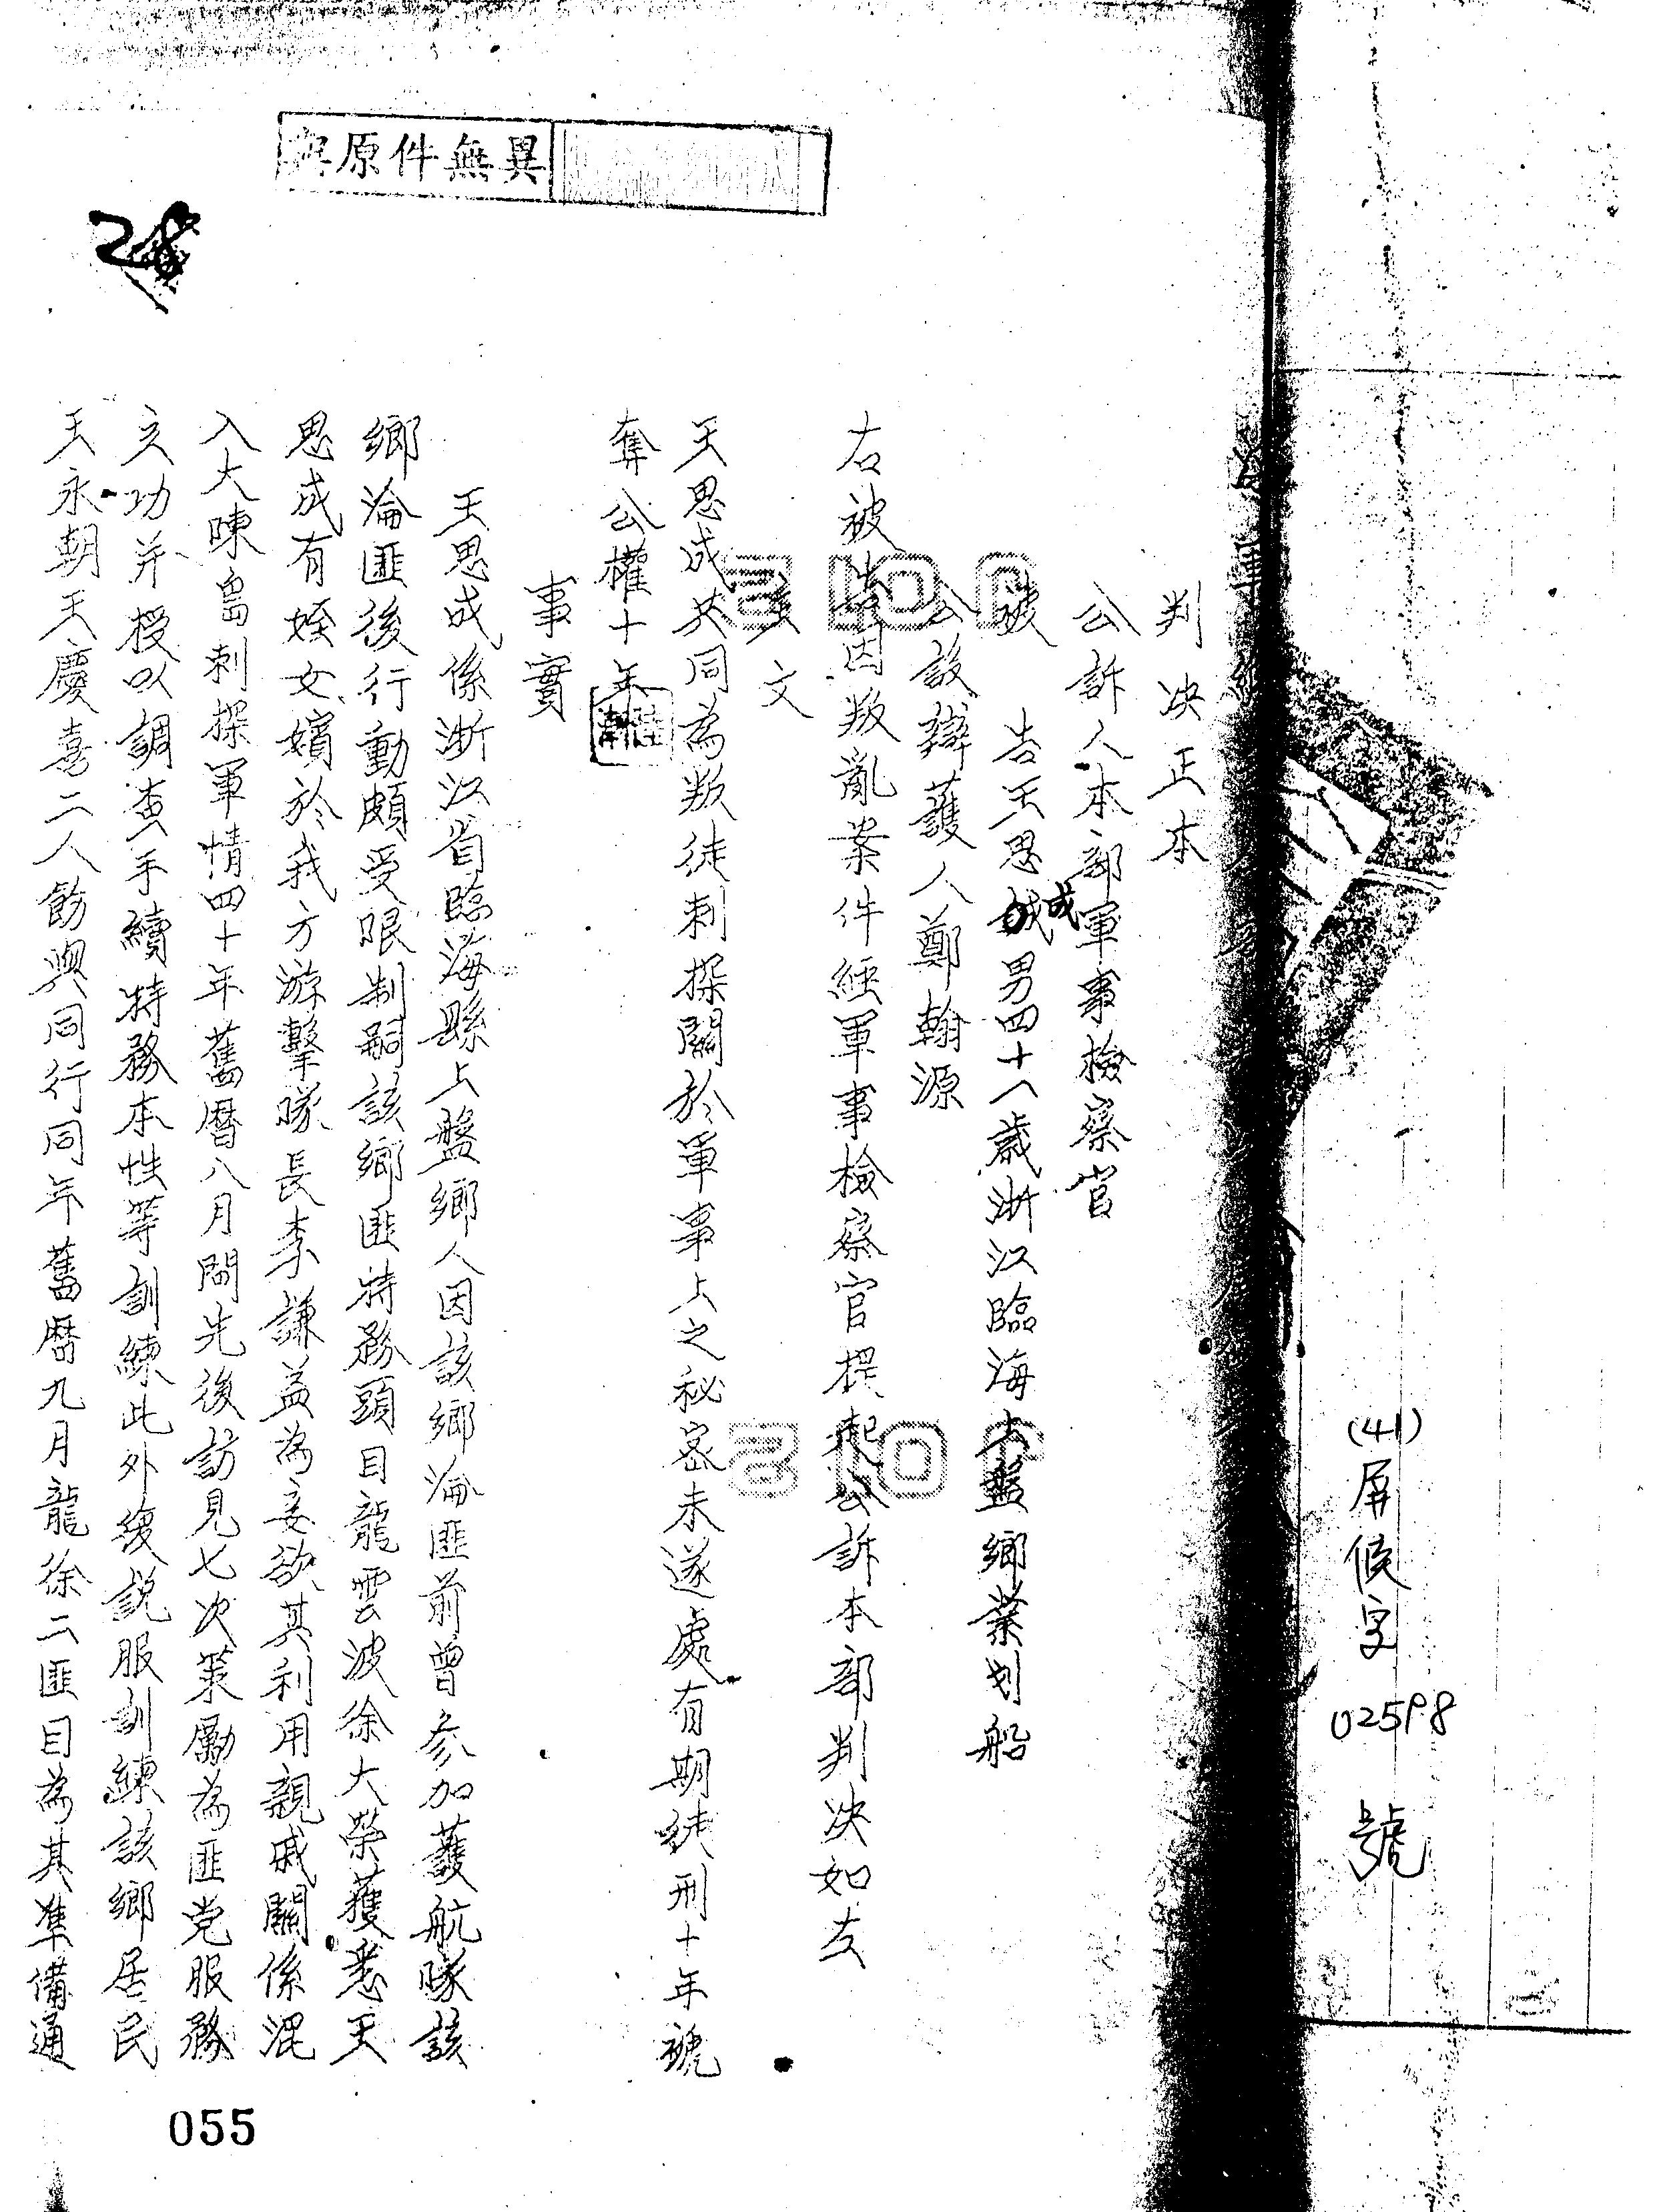 (41)屏候字02598號
判决正本
公訴人本部軍事檢察官
被告王思成男四十八歲浙江臨海上盤鄉業划船
公設辯護人鄭翰源
右被告因叛亂案件經軍事檢察官提起公訴本部判决如左
主文
王思成共同為叛徒刺探關於軍事上之秘密未遂處有期徒刑十年褫
奪公權十年
事實
王思成係浙江省臨海縣上盤鄉人因該鄉淪匪前曾参加護航隊該
鄉淪匪後行動頗受限制嗣該鄉匪特務頭目龍雲波徐大榮獲悉王
思成有姪女嬪於我方游擊隊長李謙益為妾欲其利用親戚關係混
入大陳島刺探軍情四十年舊曆八月間先後訪見七次策勵為匪党服務
立功并授以調查手續特務本性等訓練此外復説服訓練該鄉居民
王永朝王慶喜二人飭與同行同年舊曆九月龍徐二匪目為其準備通
與原件無異
28
055